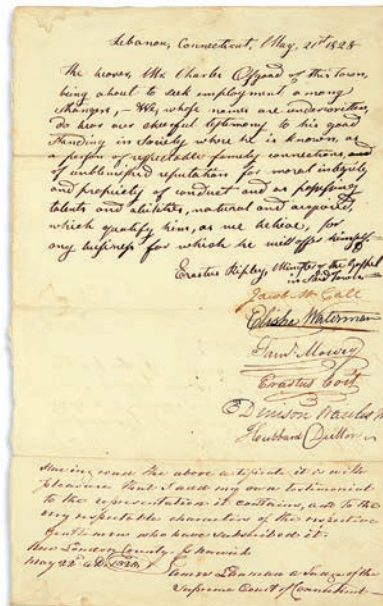 Lebanon, Connecticut, May, 21st 1828
The bearer, Mr. Charles Osgood of this town,
being about to seek employment among
strangers, – We, whose names are underwritten,
do bear our cheerful testimony to his good
standing in Society where he is known, as
a person of respectable family connections, and
of unblemished reputation for moral integrity
and propriety of conduct and as possessing
talents and abilities, natural and acquired,
which qualify him, as we believe, for
any business for which he will offer himself.
Erastus Ripley, Minister of the Gospel
in said Town
Jacob McCall
Elisha Waterman
Saml. Mowry
Erastus Coit
Denison
Hubbard Dutton
Having read the above certificate it is with
pleasure that I add my own testimonial
to the representation it contains, and to the
very respectable characters of the respective
gentlemen who have subscribed it.
New London County ss Norwich
May 22d AD. 1828
James Lanman a Judge of the
Supreme Court of Connecticut